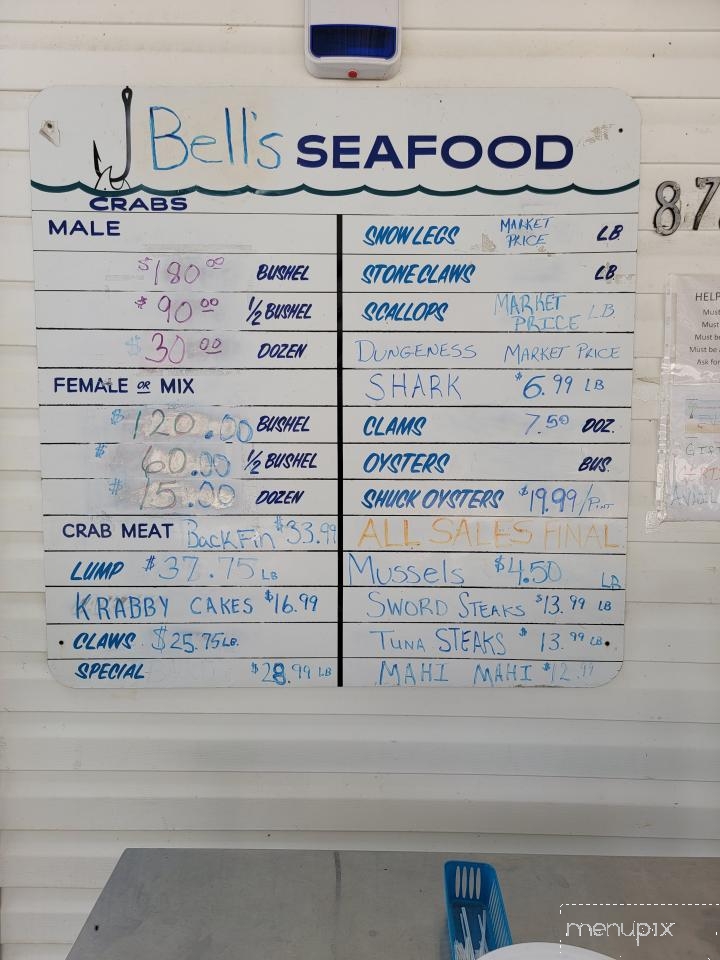 Bell's SEAFOOD
CRABS
MALE
$180.00 BUSHEL
$90.00 1/2 BUSHEL
$30.00 DOZEN
FEMALE OR MIX
$120.00 BUSHEL
$60.00 1/2 BUSHEL
$15.00 DOZEN
CRAB MEAT BackFin $33.99
LUMP $37.75 LB
KRABBY CAKES $16.99
CLAWS $25.75 LB.
SPECIAL $28.99 LB
SNOW LEGS MARKET PRICE LB
STONE CLAWS LB
SCALLOPS MARKET PRICE LB
DUNGENESS MARKET PRICE
SHARK $6.99 LB
CLAMS 7.50 DOZ.
OYSTERS BUS.
SHUCK OYSTERS $19.99/PINT
ALL SALES FINAL
Mussels $4.50 LB
SWORD STEAKS $13.99 LB
TUNA STEAKS $13.99 LB
MAHI MAHI $12.99
87
HELP
Must
Must
Must b
Must be a
Ask for
menupix